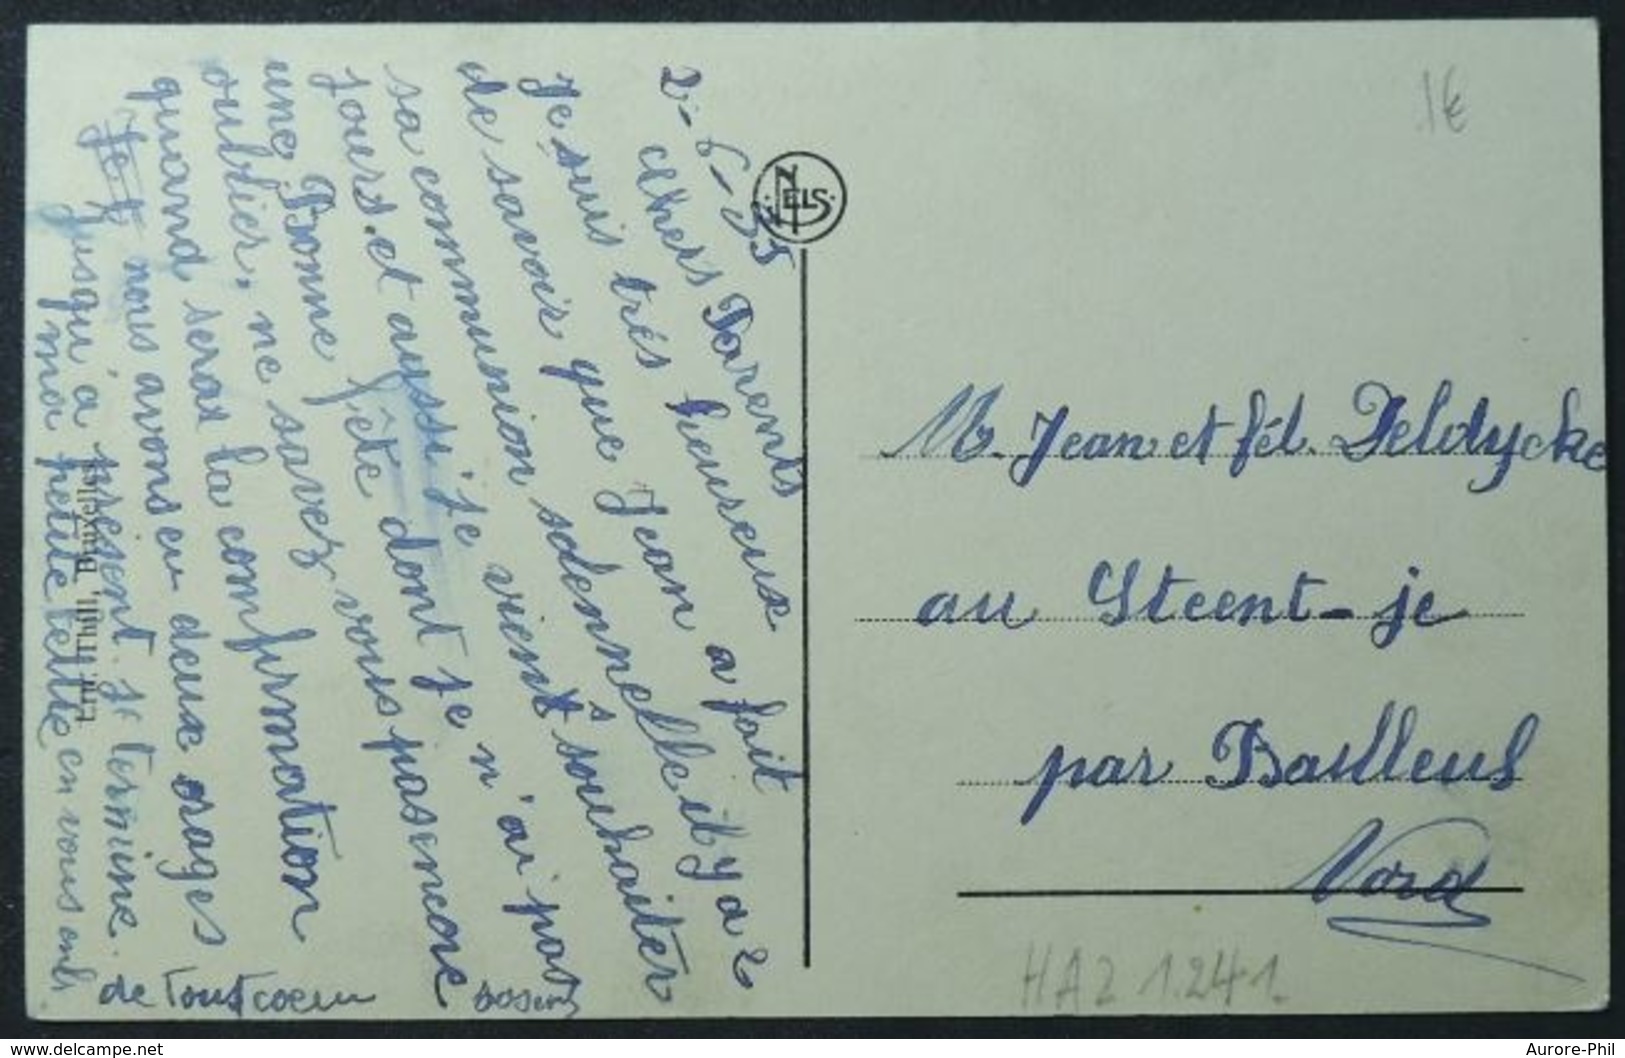 2-6-35
chers Parents
Je suis très heureuse
de savoir que Jean a fait
sa communion solennelle il y a 2
jours. et aussi je vient souhaiter
une Bonne fête dont je n'ai pas
oublier, ne savez vous pas encore
quand seras la confirmation
nous avons eu deux orages
jusqu'à présent. je termine
ma petite lettre en vous
de tout coeur
NELS
M. Jean et fél. Deldycke
au Steent-je
par Bailleul
Nord
1€
HAZ 1.241.
Ern. Thill, Bruxelles
www.delcampe.net
Aurore-Phil